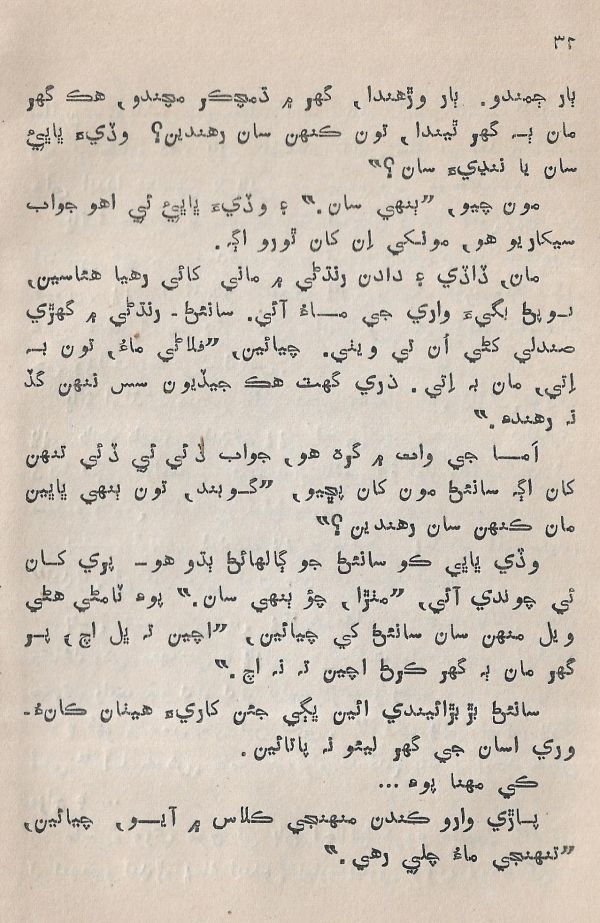 ٣٢
ٻار ڄمندو. ٻار وڙهندا, گهر ۾ ڌمچڪر مچندو, هڪ گهر
مان ٻـه گهر ٿيندا, تون ڪنهن سان رهندين؟ وڏيءَ ڀاڀيءُ
سان يا ننڍيءَ سان؟”
مون چيو, ”ٻنهي سان.” ۽ وڏيءَ ڀاڀيءُ ئي اهو جواب
سيکاريو هو, مونکي اِن کان ٿورو اڳ.
مان, ڏاڏي ۽ دادن رنڌڻي ۾ ماني کائي رهيا هئاسين,
بگيءَ واري جي مــاءُ آئي. سائڻ ـ رنڌڻي ۾ گهڙي
صندلي کڻي اُن تي ويٺي. چيائين, ”فلاڻي ماءُ, تون بـه
اِتي, مان بہ اِتي. ذري گهٽ هڪ جيڏيون سس ننهن گڏ
نہ رهنده.”
اَمــا جي وات ۾ گرهه هو, جواب ڏئي ئي ڏئي تنهن
کان اڳـ سائڻ مون کان پڇيو, ”گـوبند, تون ٻنهي ڀاڀين
مان ڪنهن سان رهندين؟”
وڏي ڀاڀي ڪو سائڻ جو ڳالهائڻ ٻڌو هو ـ پري کــان
ئي چوندي آئي, ”منڙا, چؤ ٻنهي سان.” پوءِ ٽامڻي هڻي
ويل منهن سان سائڻ کي چيائين, ”اچين تہ ڀل اچ, پـر
گهر مان ٻہ گهر ڪرڻ اچين تہ نہ اچ.”
سائڻ بڙبڙائيندي ائين ڀڳي جئن ڪاريءَ هينان ڪانءُ ـ
وري اسان جي گهر ليئو نہ پاتائين.
ڪي مهنا پوءِ ...
پــاڙي وارو ڪندن منهنجي ڪلاس ۾ آيــو, چيائين,
”تنهنجي ماءُ چلي رهي.”